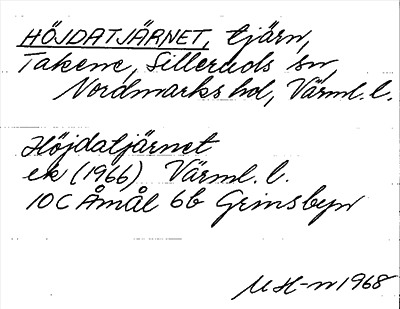 HÖJDATJÄRNET, tjärn,
Takene, Silleruds sn,
Nordmarks hd, Värml. l.
Höjdatjärnet
ek (1966) Värml. l.
10C Åmål 6b Grinsbyn
M H-n 1968